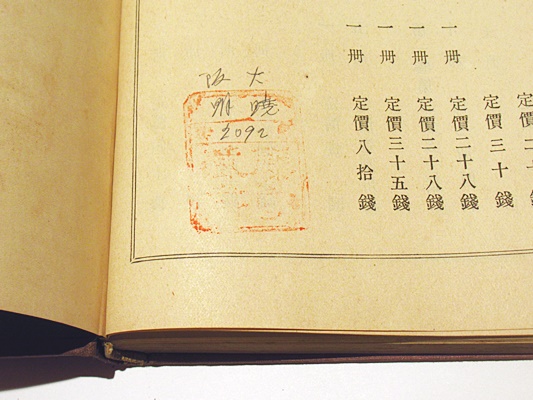 定價三十錢
一冊 定價二十八錢
一冊 定價二十八錢
一冊 定價三十五錢
一冊 定價八拾錢
大阪
曉明
2092